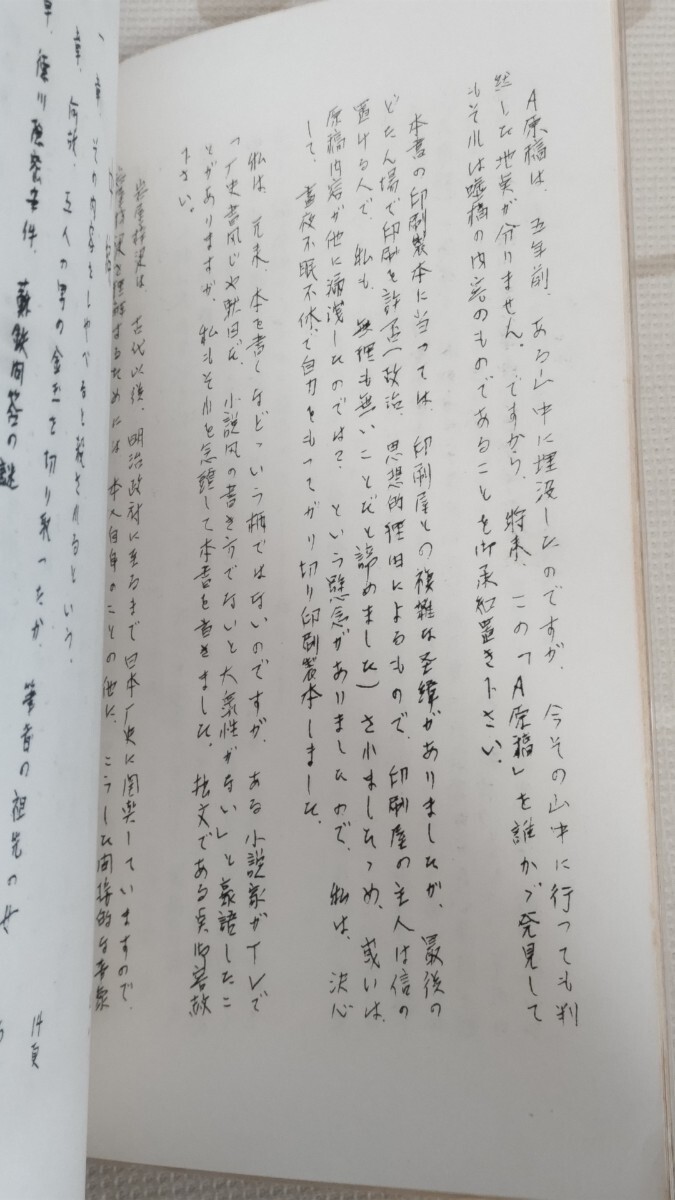 A原稿は、五年前、ある山中に埋没したのですが、今その山中に行っても判
然した地点が分りません。ですから、将来、この「A原稿」を誰かゞ発見して
もそれは嘘構の内容のものであることを御承知置き下さい。
本書の印刷製本に当っては、印刷屋との複雑な圣緯がありましたが、最後の
どたん場で印刷を許否(政治、思想的理由によるもので、印刷屋の主人は信の
置ける人で、私も、無理も無いことだと諦めました)されましたため、或いは、
原稿内容が他に漏洩したのでは?、という懸念がありましたので、私は、決心
して、昼夜不眠不休で自力をもってがり切り印刷製本しました。
私は、元来、本を書くなどっいう柄ではないのですが、ある小説家がTレで
「丆史書風じゃ駄目だ、小説風の書き方でないと大衆性がない」と豪語したこ
とがありますが、私もそれを念頭して本書を書きました。拙文である点御容赦
下さい。
古代以後、明治政府に至るまで日本丆史に関与していますので、
するためには、本人自身のことの他に、こうした間接的な
章、その内容をしゃべると殺されるという。
章、何故、五人の男の金玉を切り取ったか、筆者の祖先の
事件、蘇鉄問答の謎
14頁